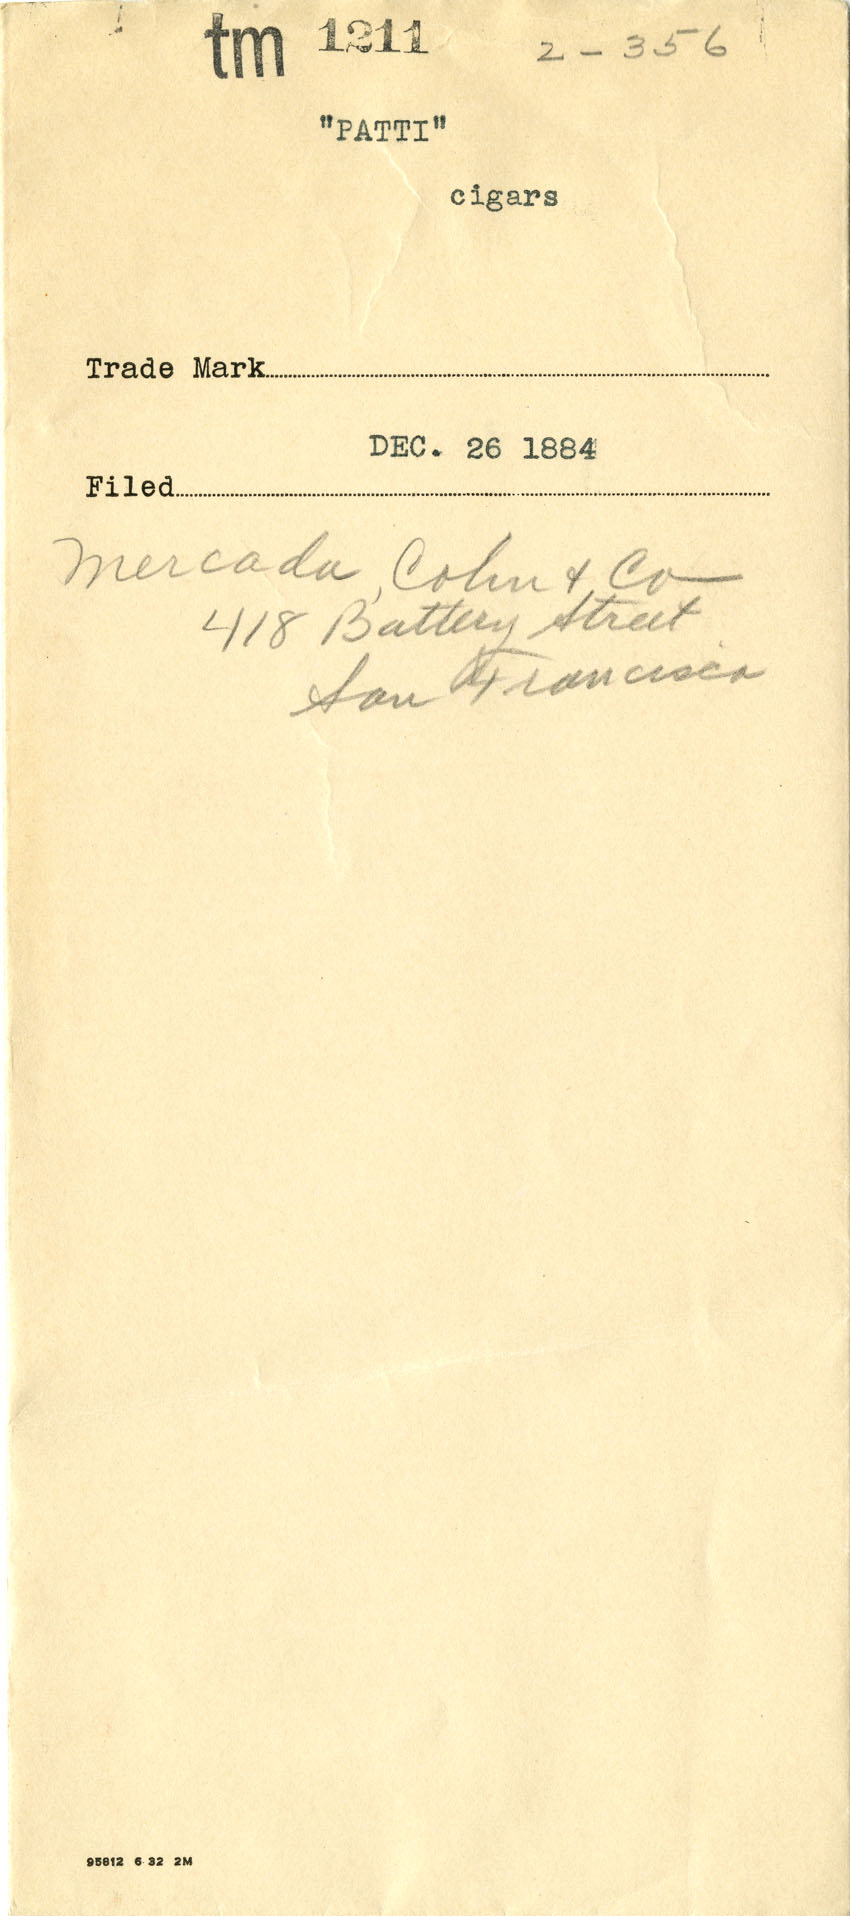 tm 1211 2-356
"PATTI"
cigars
Trade Mark
DEC. 26 1884
Filed
Mercado, Cohn & Co
418 Battery Street
San Francisco
95812 6 32 2M